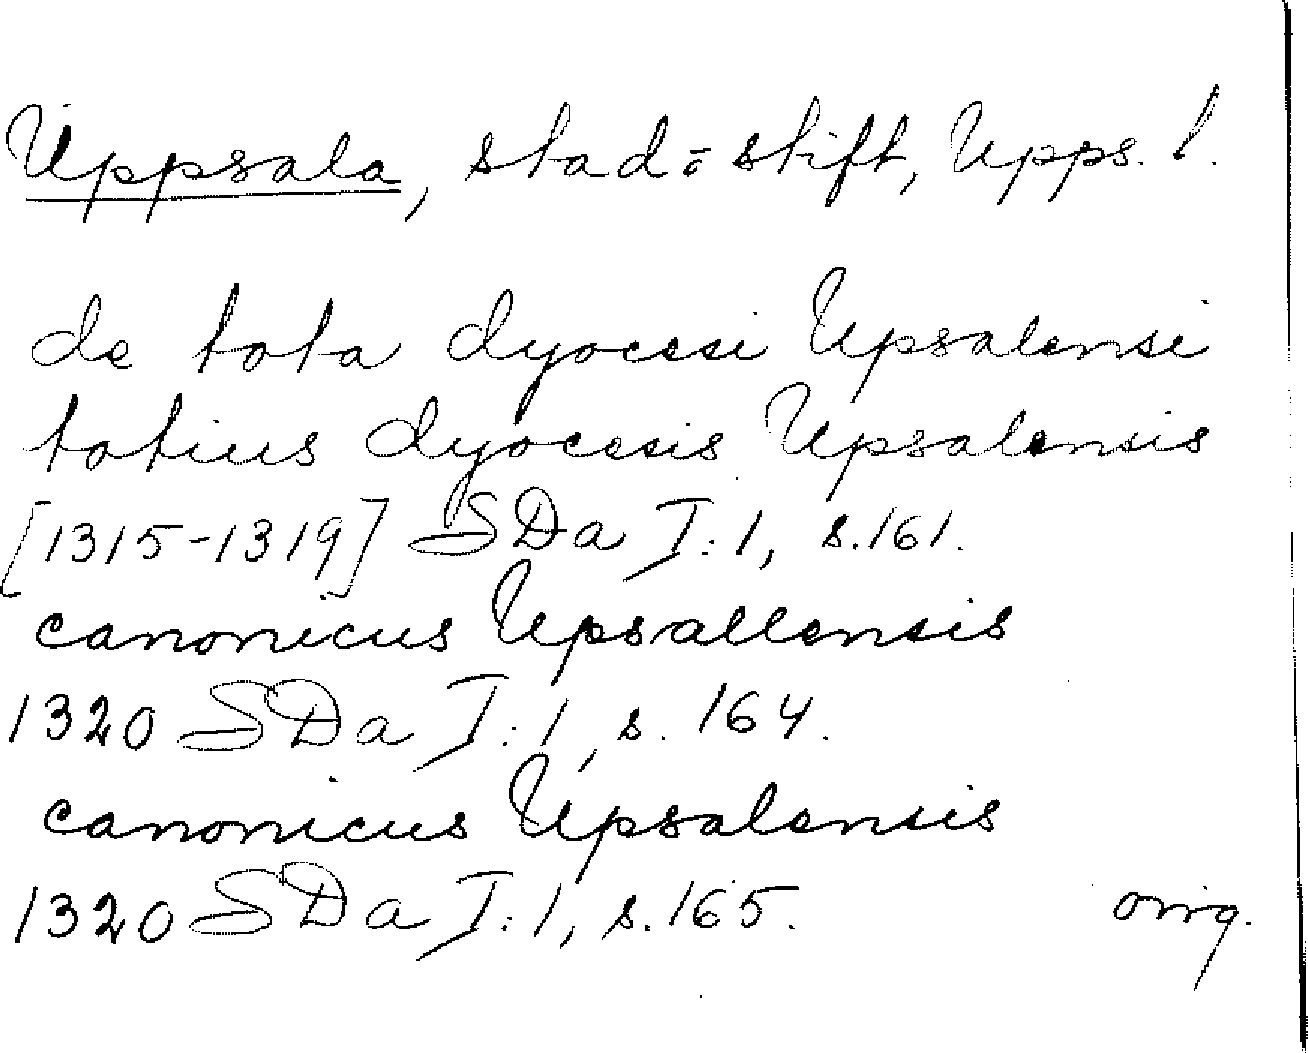 Uppsala, stad o stift, Upps. l.
de tota dyocesi Upsalensi
totius dyocesis Upsalensis
[1315-1319] SDa I:1, s.161.
canonicus Upsallensis
1320 SDa I:1, s. 164.
canonicus Upsalensis
1320 SDa I:1, s.165. omg.